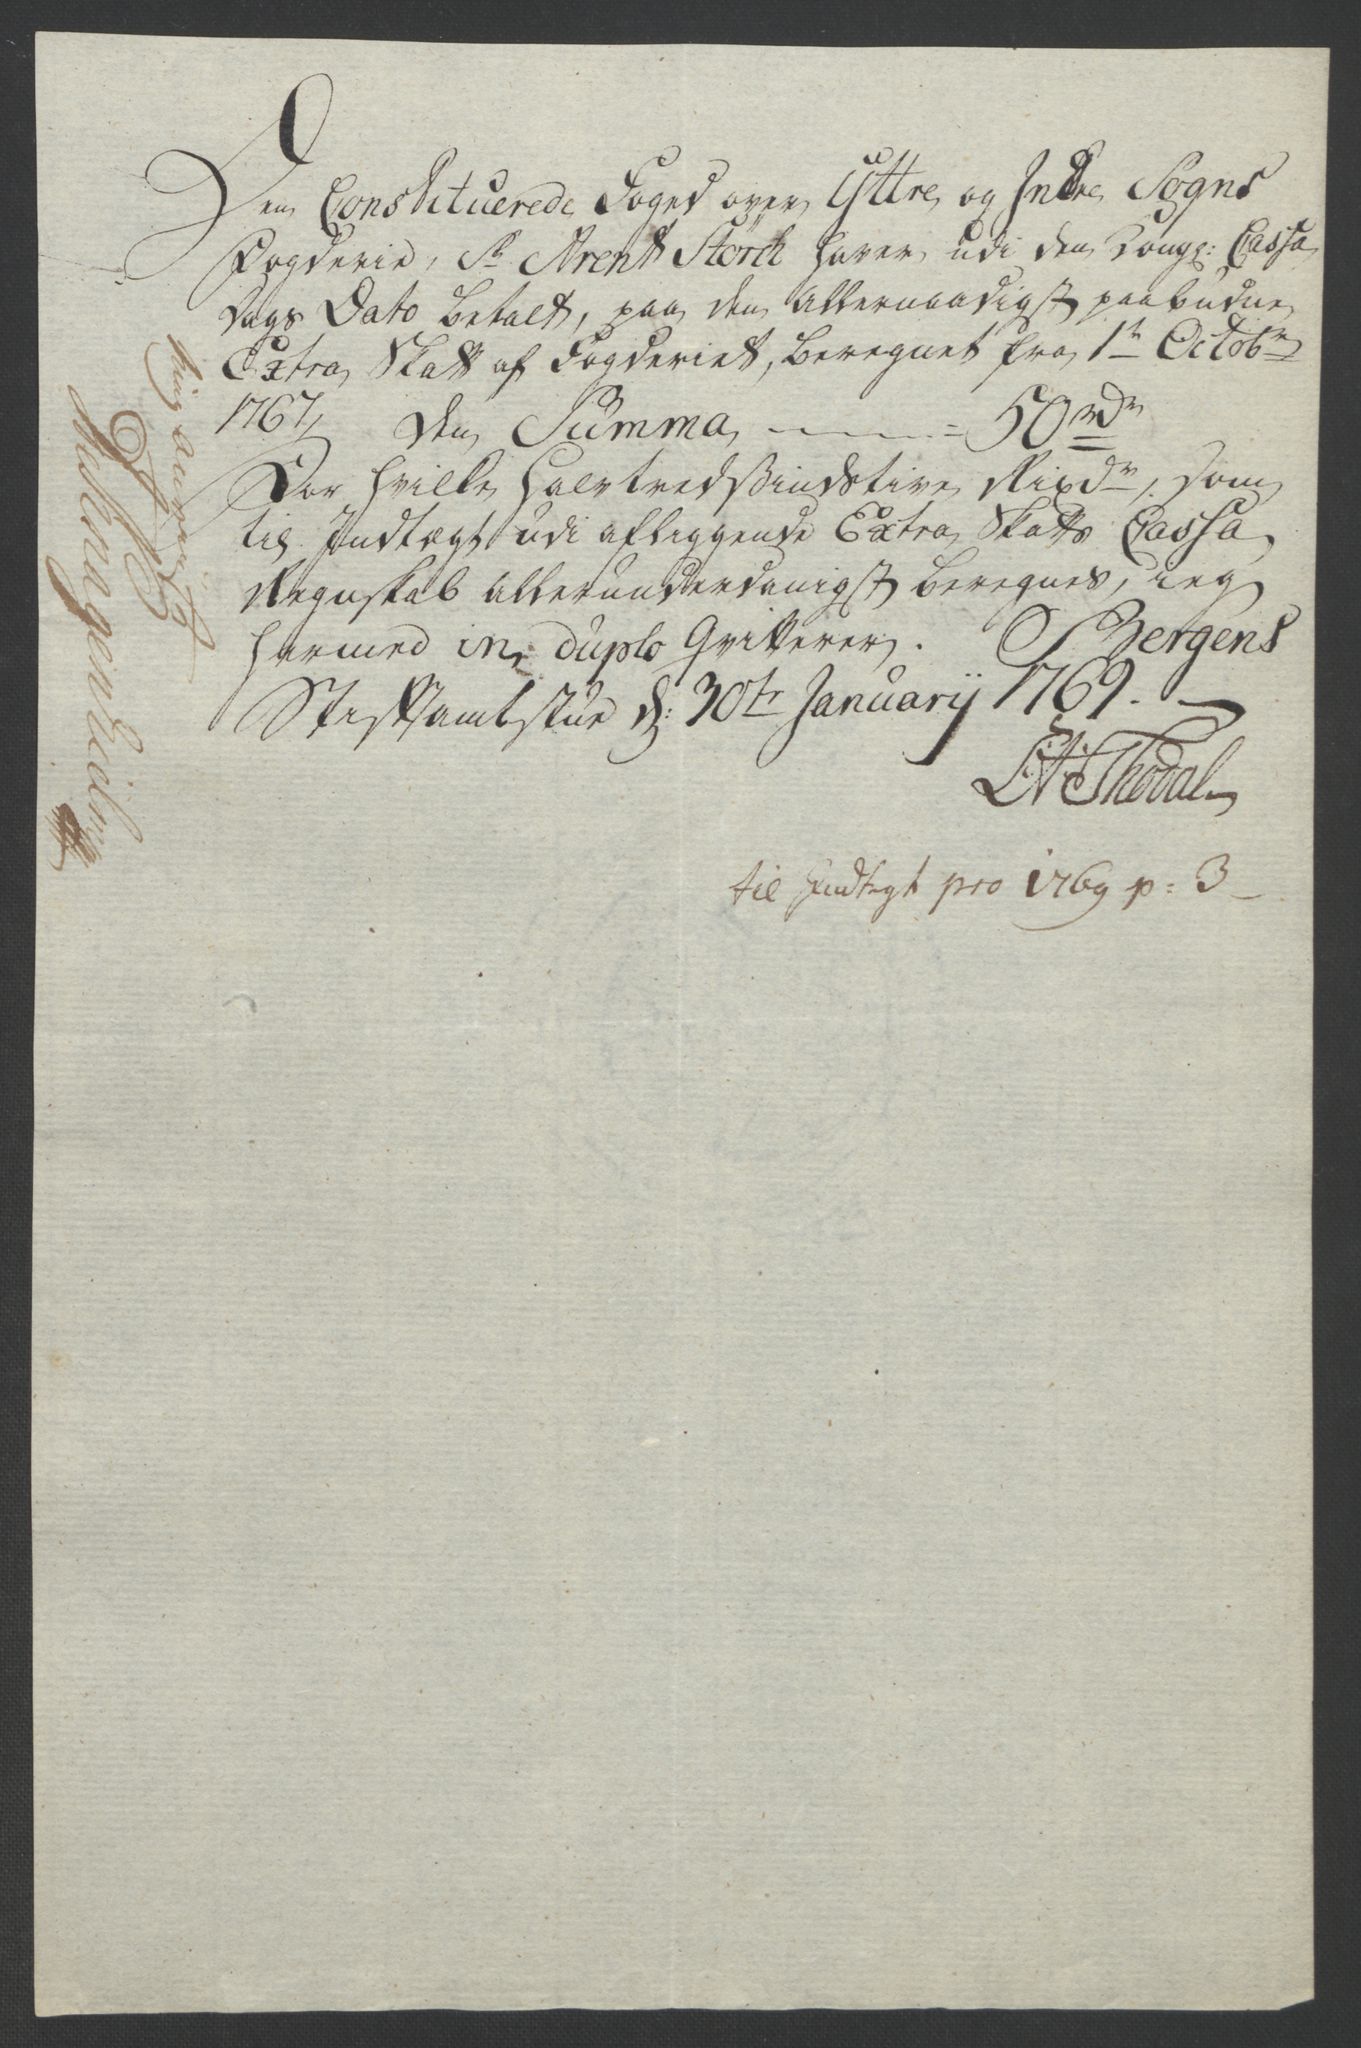 Den Constituerede Foged over Yttre og Indre Sogns
Fogderie, Sr. Arent Störck haver udi den Kongl: Cassa
dags Dato betalt, paa den allernaadigst paabudne
Extra Skatt af Fogderiet, beregnet fra 1te Octobr
1767, den Summa = 50 rdr
For hvilke Halvtredssindstive Rixdr, som
til Indtægt udi aflæggende Extra Skatts Cassa
Regnskab allerunderdanigst beregnes, ieg
hermed in duplo Qvitterer. Bergens
Stiftamtstue d: 30te Januarij 1769.
Thodal
til Indtegt pro 1769 p: 3